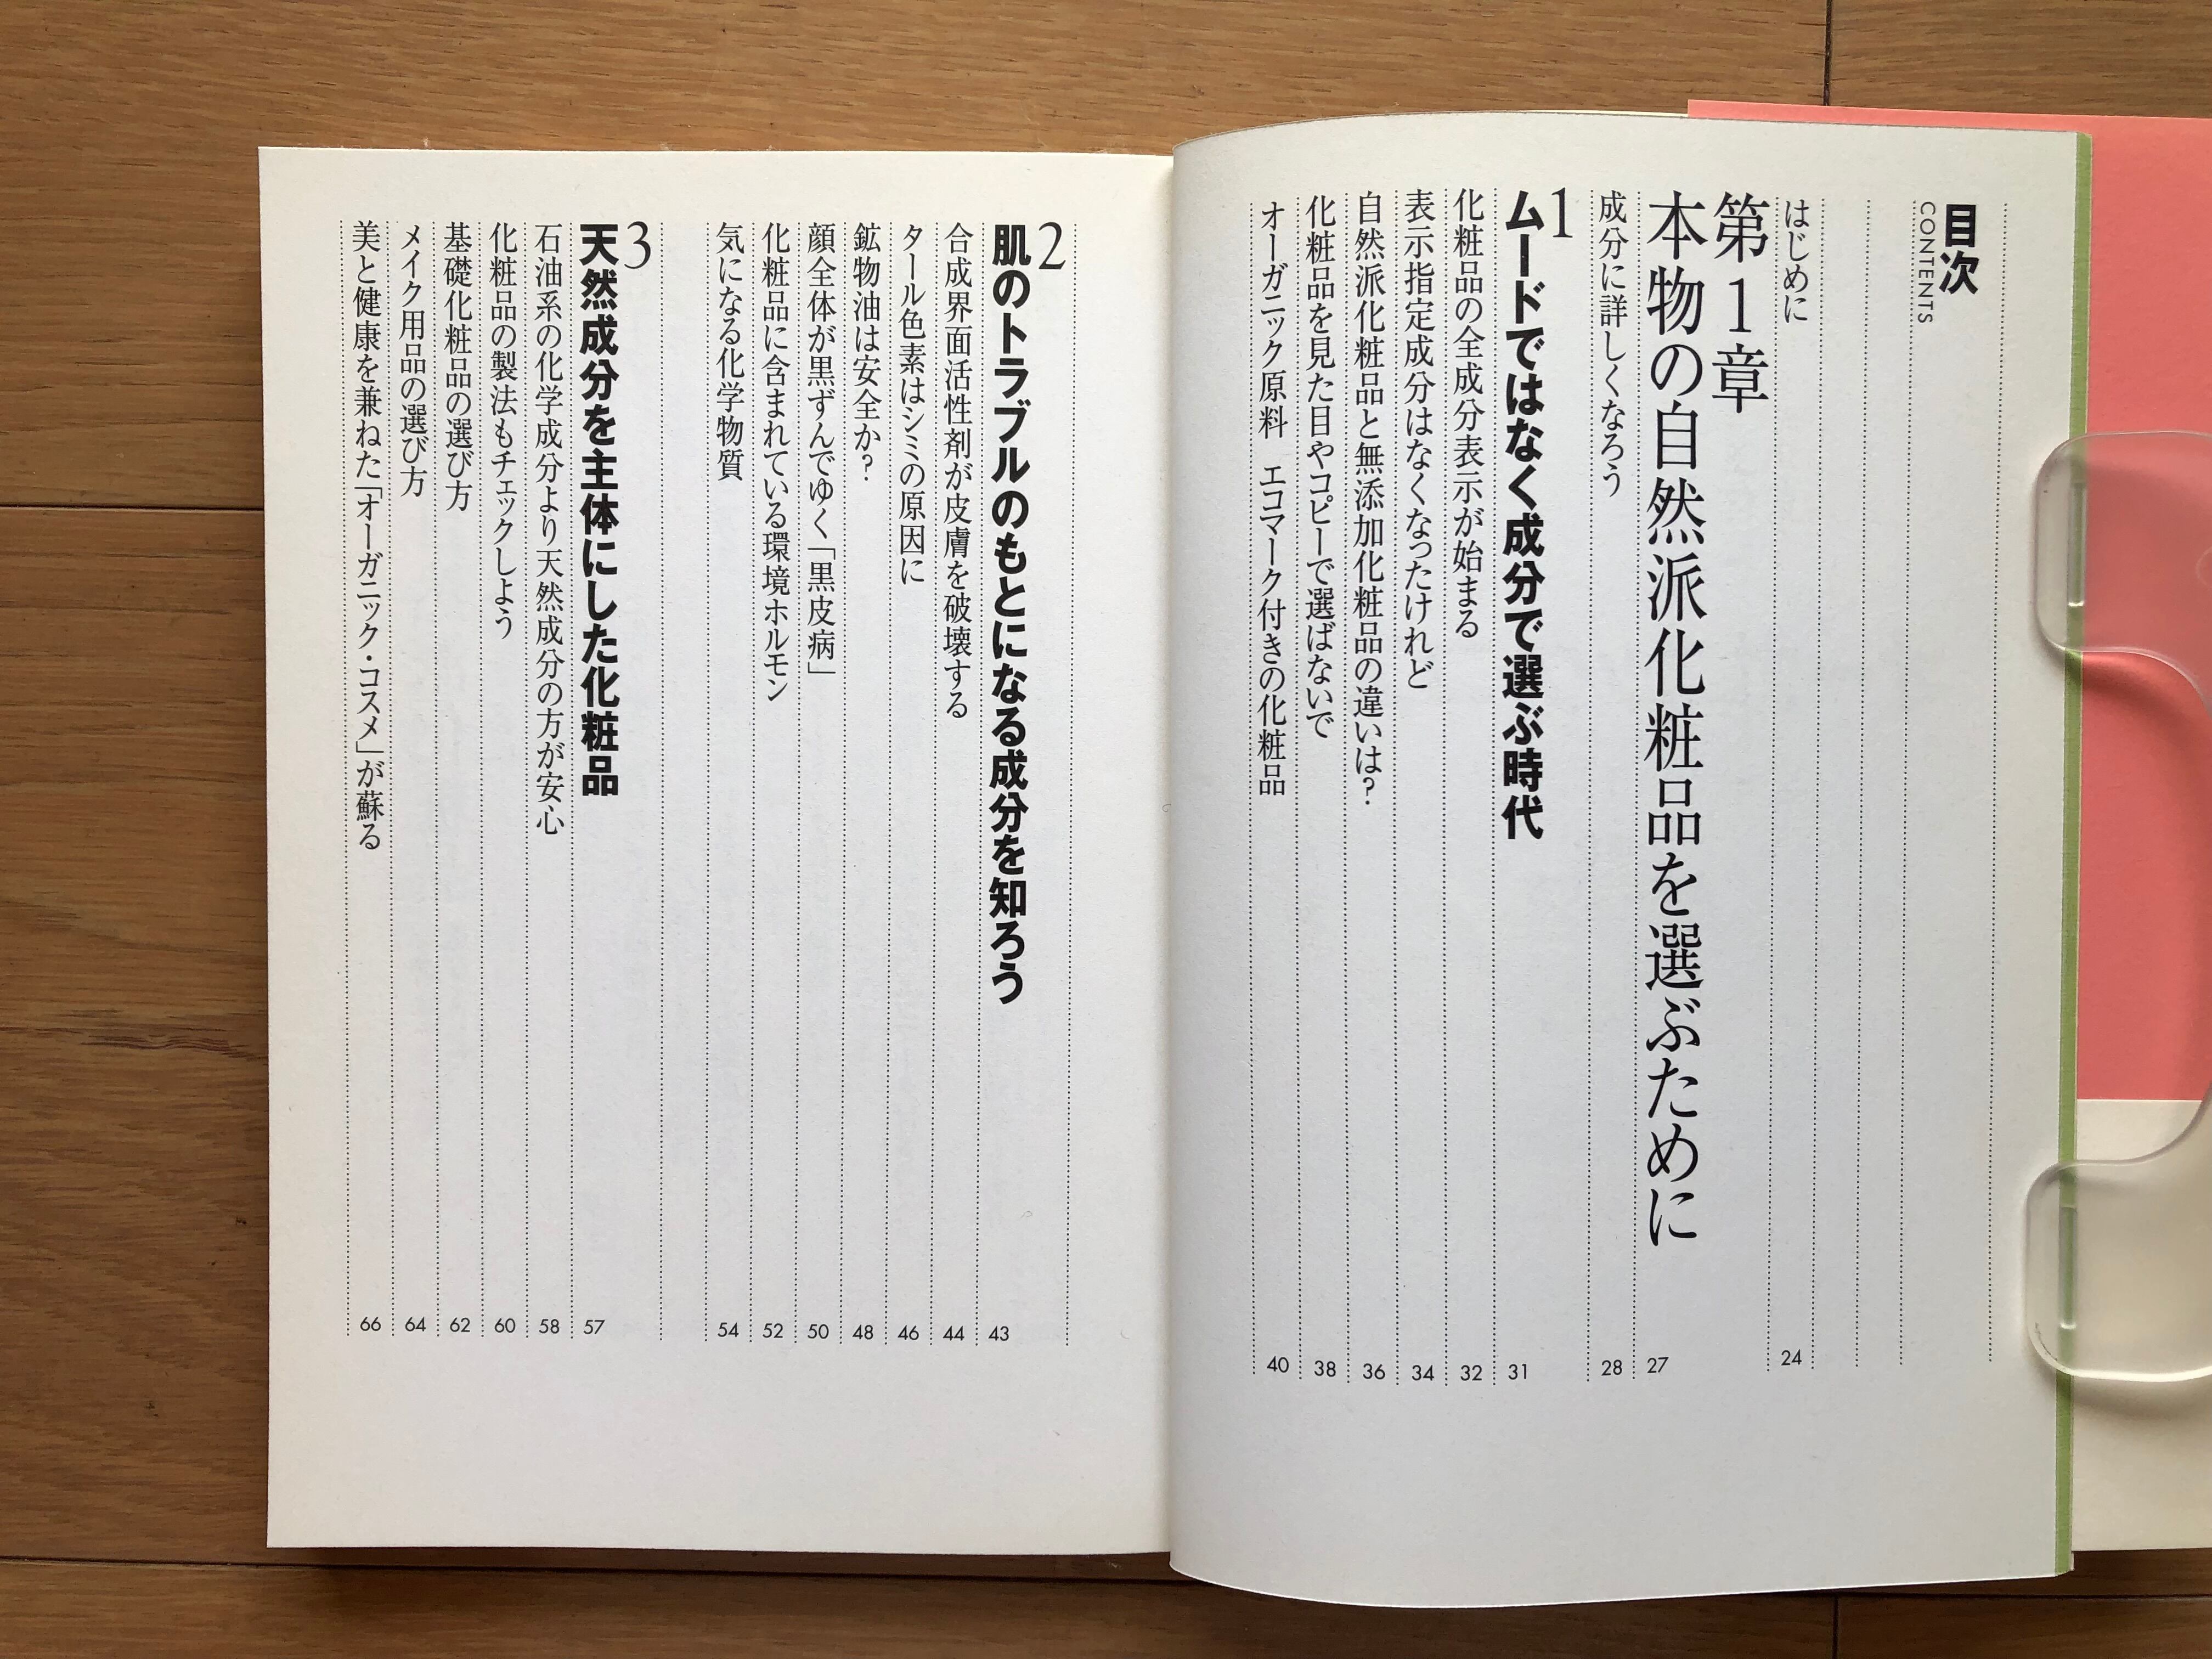 目次
CONTENTS
はじめに 24
第1章
本物の自然派化粧品を選ぶために 27
成分に詳しくなろう 28
1
ムードではなく成分で選ぶ時代 31
化粧品の全成分表示が始まる 32
表示指定成分はなくなったけれど 34
自然派化粧品と無添加化粧品の違いは? 36
化粧品を見た目やコピーで選ばないで 38
オーガニック原料 エコマーク付きの化粧品 40
2
肌のトラブルのもとになる成分を知ろう 43
合成界面活性剤が皮膚を破壊する 44
タール色素はシミの原因に 46
鉱物油は安全か? 48
顔全体が黒ずんでゆく「黒皮病」 50
化粧品に含まれている環境ホルモン 52
気になる化学物質 54
3
天然成分を主体にした化粧品 57
石油系の化学成分より天然成分の方が安心 58
化粧品の製法もチェックしよう 60
基礎化粧品の選び方 62
メイク用品の選び方 64
美と健康を兼ねた「オーガニック・コスメ」が蘇る 66